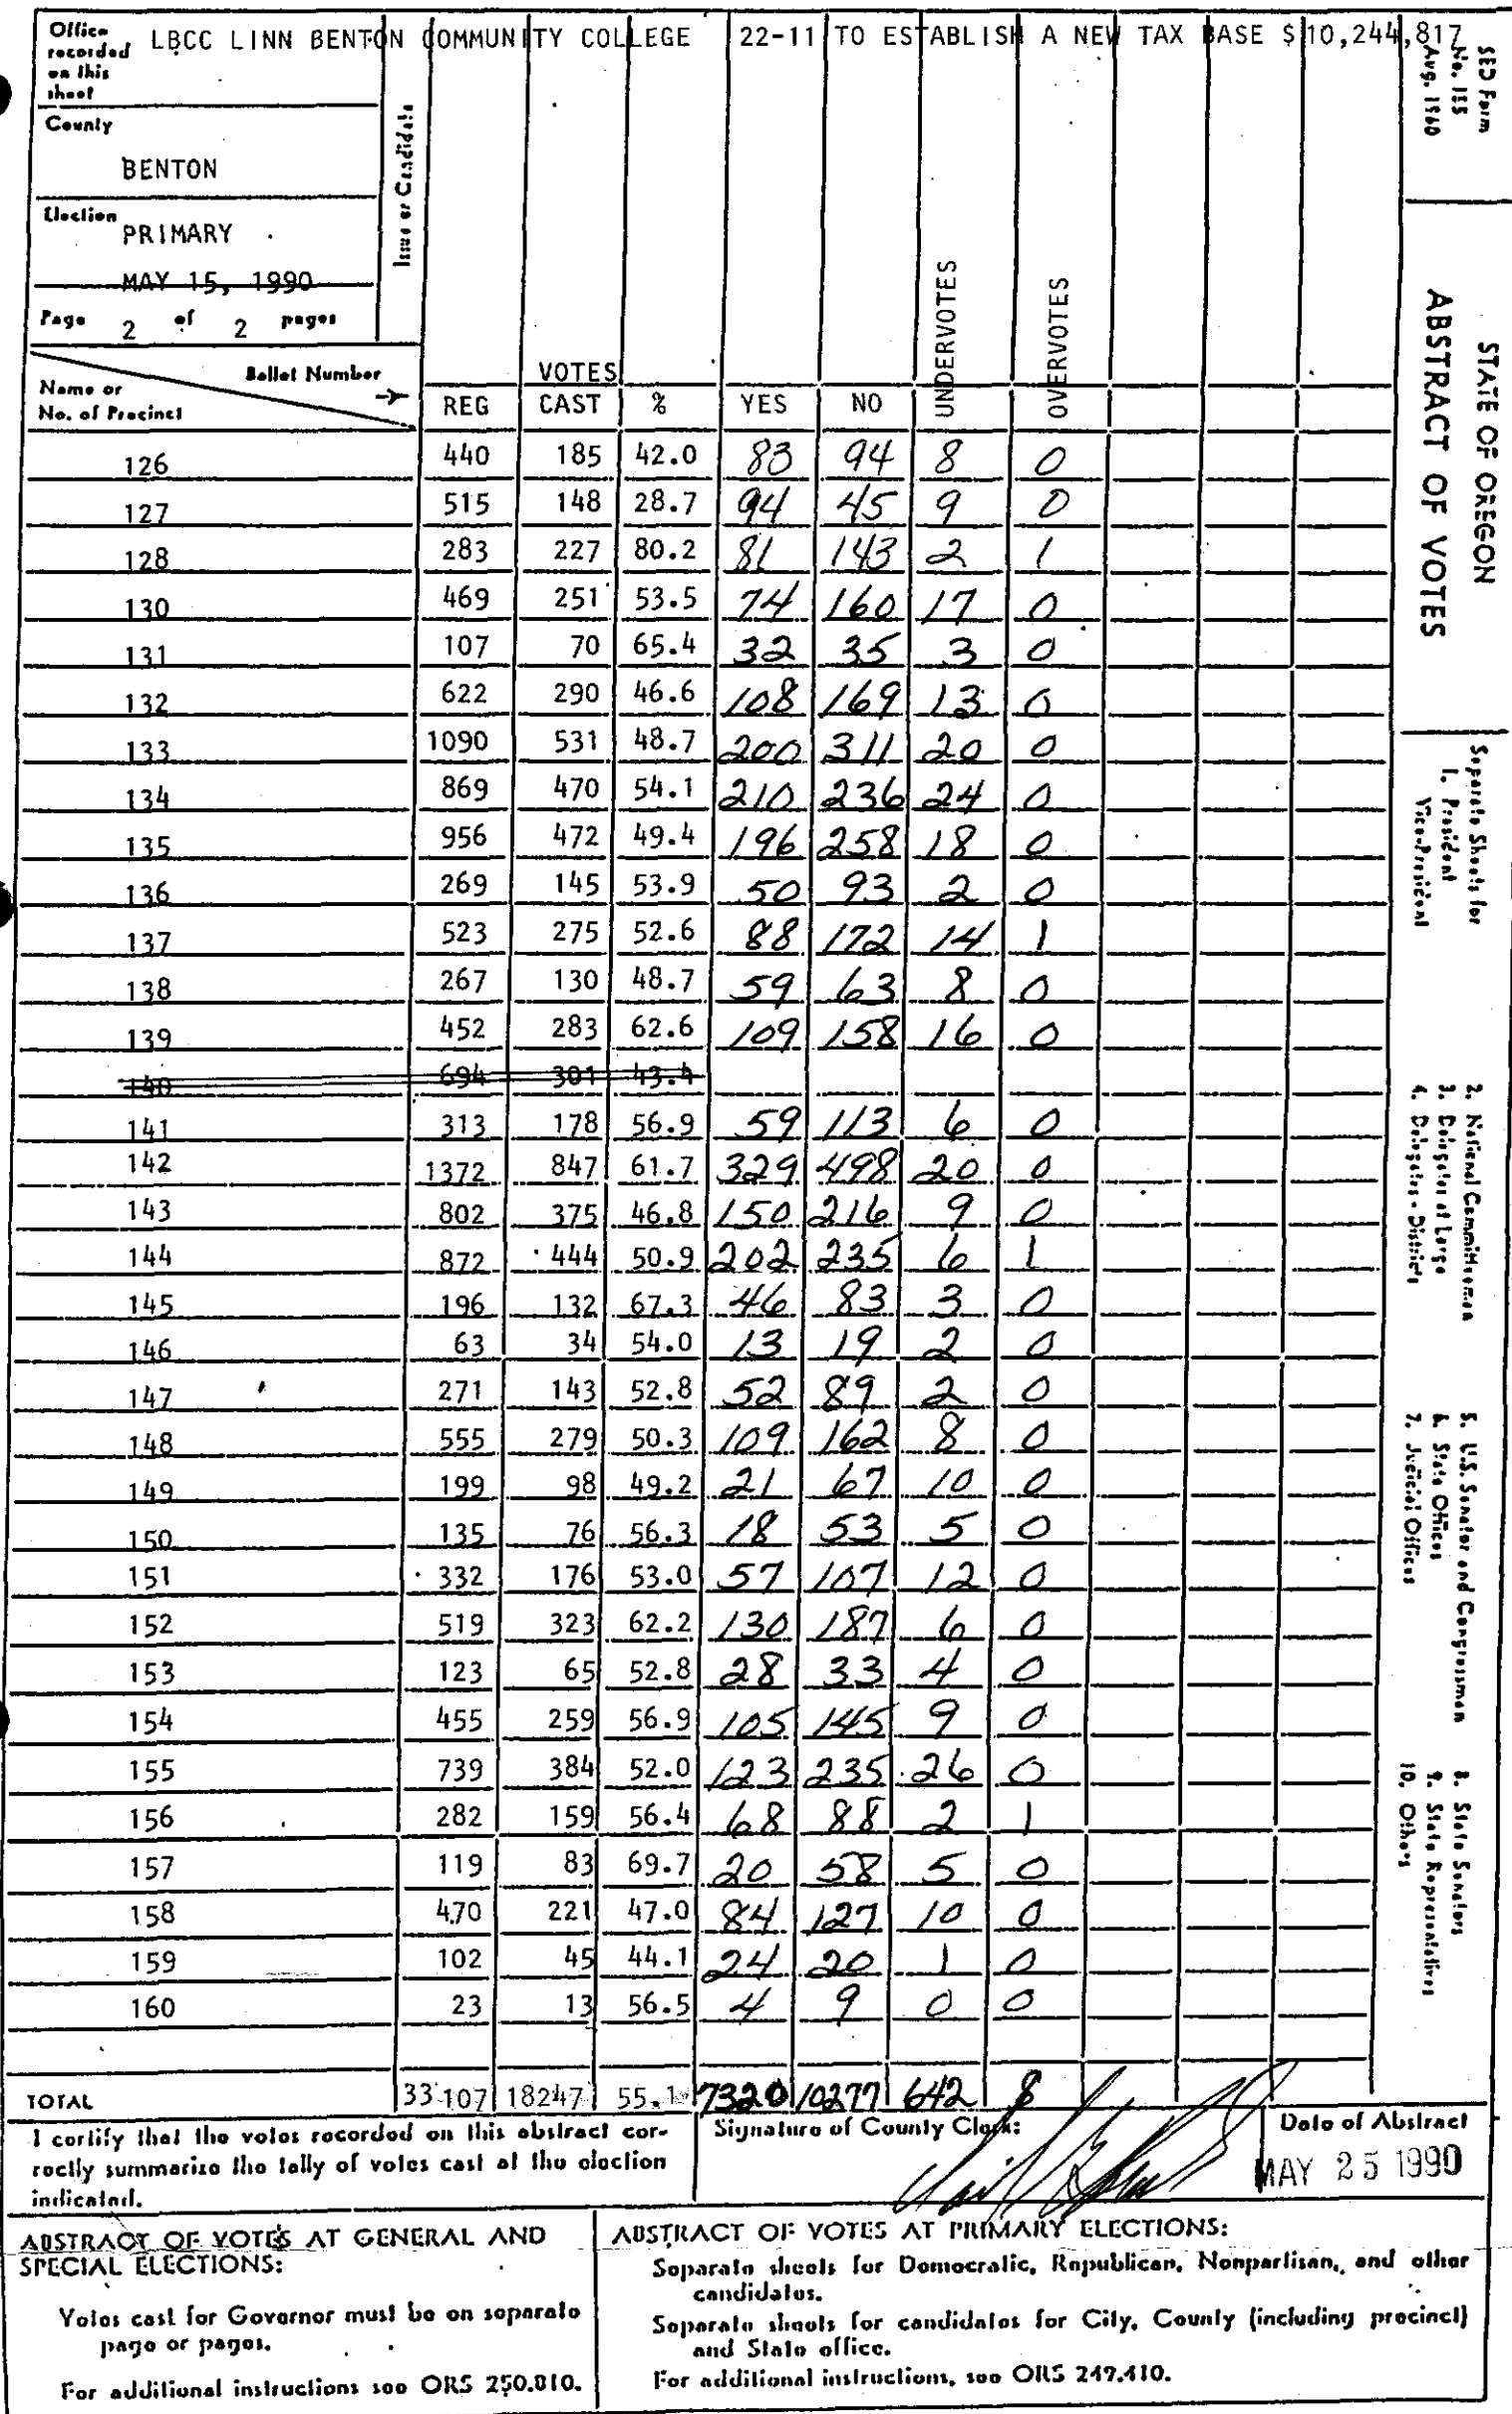 Office recorded on this sheet LBCC LINN BENTON COMMUNITY COLLEGE 22-11 TO ESTABLISH A NEW TAX BASE $10,244,817
County
BENTON
Election PRIMARY
MAY 15, 1990
Page 2 of 2 pages
Issue or Candidate
Ballot Number
Name or No. of Precinct
REG VOTES CAST % YES NO UNDERVOTES OVERVOTES
126 440 185 42.0 83 94 8 0
127 515 148 28.7 94 45 9 0
128 283 227 80.2 81 143 2 1
130 469 251 53.5 74 160 17 0
131 107 70 65.4 32 35 3 0
132 622 290 46.6 108 169 13 0
133 1090 531 48.7 200 311 20 0
134 869 470 54.1 210 236 24 0
135 956 472 49.4 196 258 18 0
136 269 145 53.9 50 93 2 0
137 523 275 52.6 88 172 14 1
138 267 130 48.7 59 63 8 0
139 452 283 62.6 109 158 16 0
140 694 301 43.4
141 313 178 56.9 59 113 6 0
142 1372 847 61.7 329 498 20 0
143 802 375 46.8 150 216 9 0
144 872 444 50.9 202 235 6 1
145 196 132 67.3 46 83 3 0
146 63 34 54.0 13 19 2 0
147 271 143 52.8 52 89 2 0
148 555 279 50.3 109 162 8 0
149 199 98 49.2 21 67 10 0
150 135 76 56.3 18 53 5 0
151 332 176 53.0 57 107 12 0
152 519 323 62.2 130 187 6 0
153 123 65 52.8 28 33 4 0
154 455 259 56.9 105 145 9 0
155 739 384 52.0 123 235 26 0
156 282 159 56.4 68 88 2 1
157 119 83 69.7 20 58 5 0
158 470 221 47.0 84 127 10 0
159 102 45 44.1 24 20 1 0
160 23 13 56.5 4 9 0 0
TOTAL 33107 18247 55.1 7320 10277 642 8
I certify that the votes recorded on this abstract cor-
rectly summarize the tally of votes cast at the election
indicated.
Signature of County Clerk:
Date of Abstract
MAY 25 1990
ABSTRACT OF VOTES AT GENERAL AND
SPECIAL ELECTIONS:
Votes cast for Governor must be on separate
page or pages.
For additional instructions see ORS 250.810.
ABSTRACT OF VOTES AT PRIMARY ELECTIONS:
Separate sheets for Democratic, Republican, Nonpartisan, and other
candidates.
Separate sheets for candidates for City, County (including precinct)
and State office.
For additional instructions, see ORS 249.410.
SED Form
No. 155
Aug. 1960
STATE OF OREGON
ABSTRACT OF VOTES
Separate Sheets for
1. President
Vice-President
2. National Committeeman
3. Delegates at Large
4. Delegates - Districts
5. U.S. Senator and Congressmen
6. State Offices
7. Judicial Offices
8. State Senators
9. State Representatives
10. Others